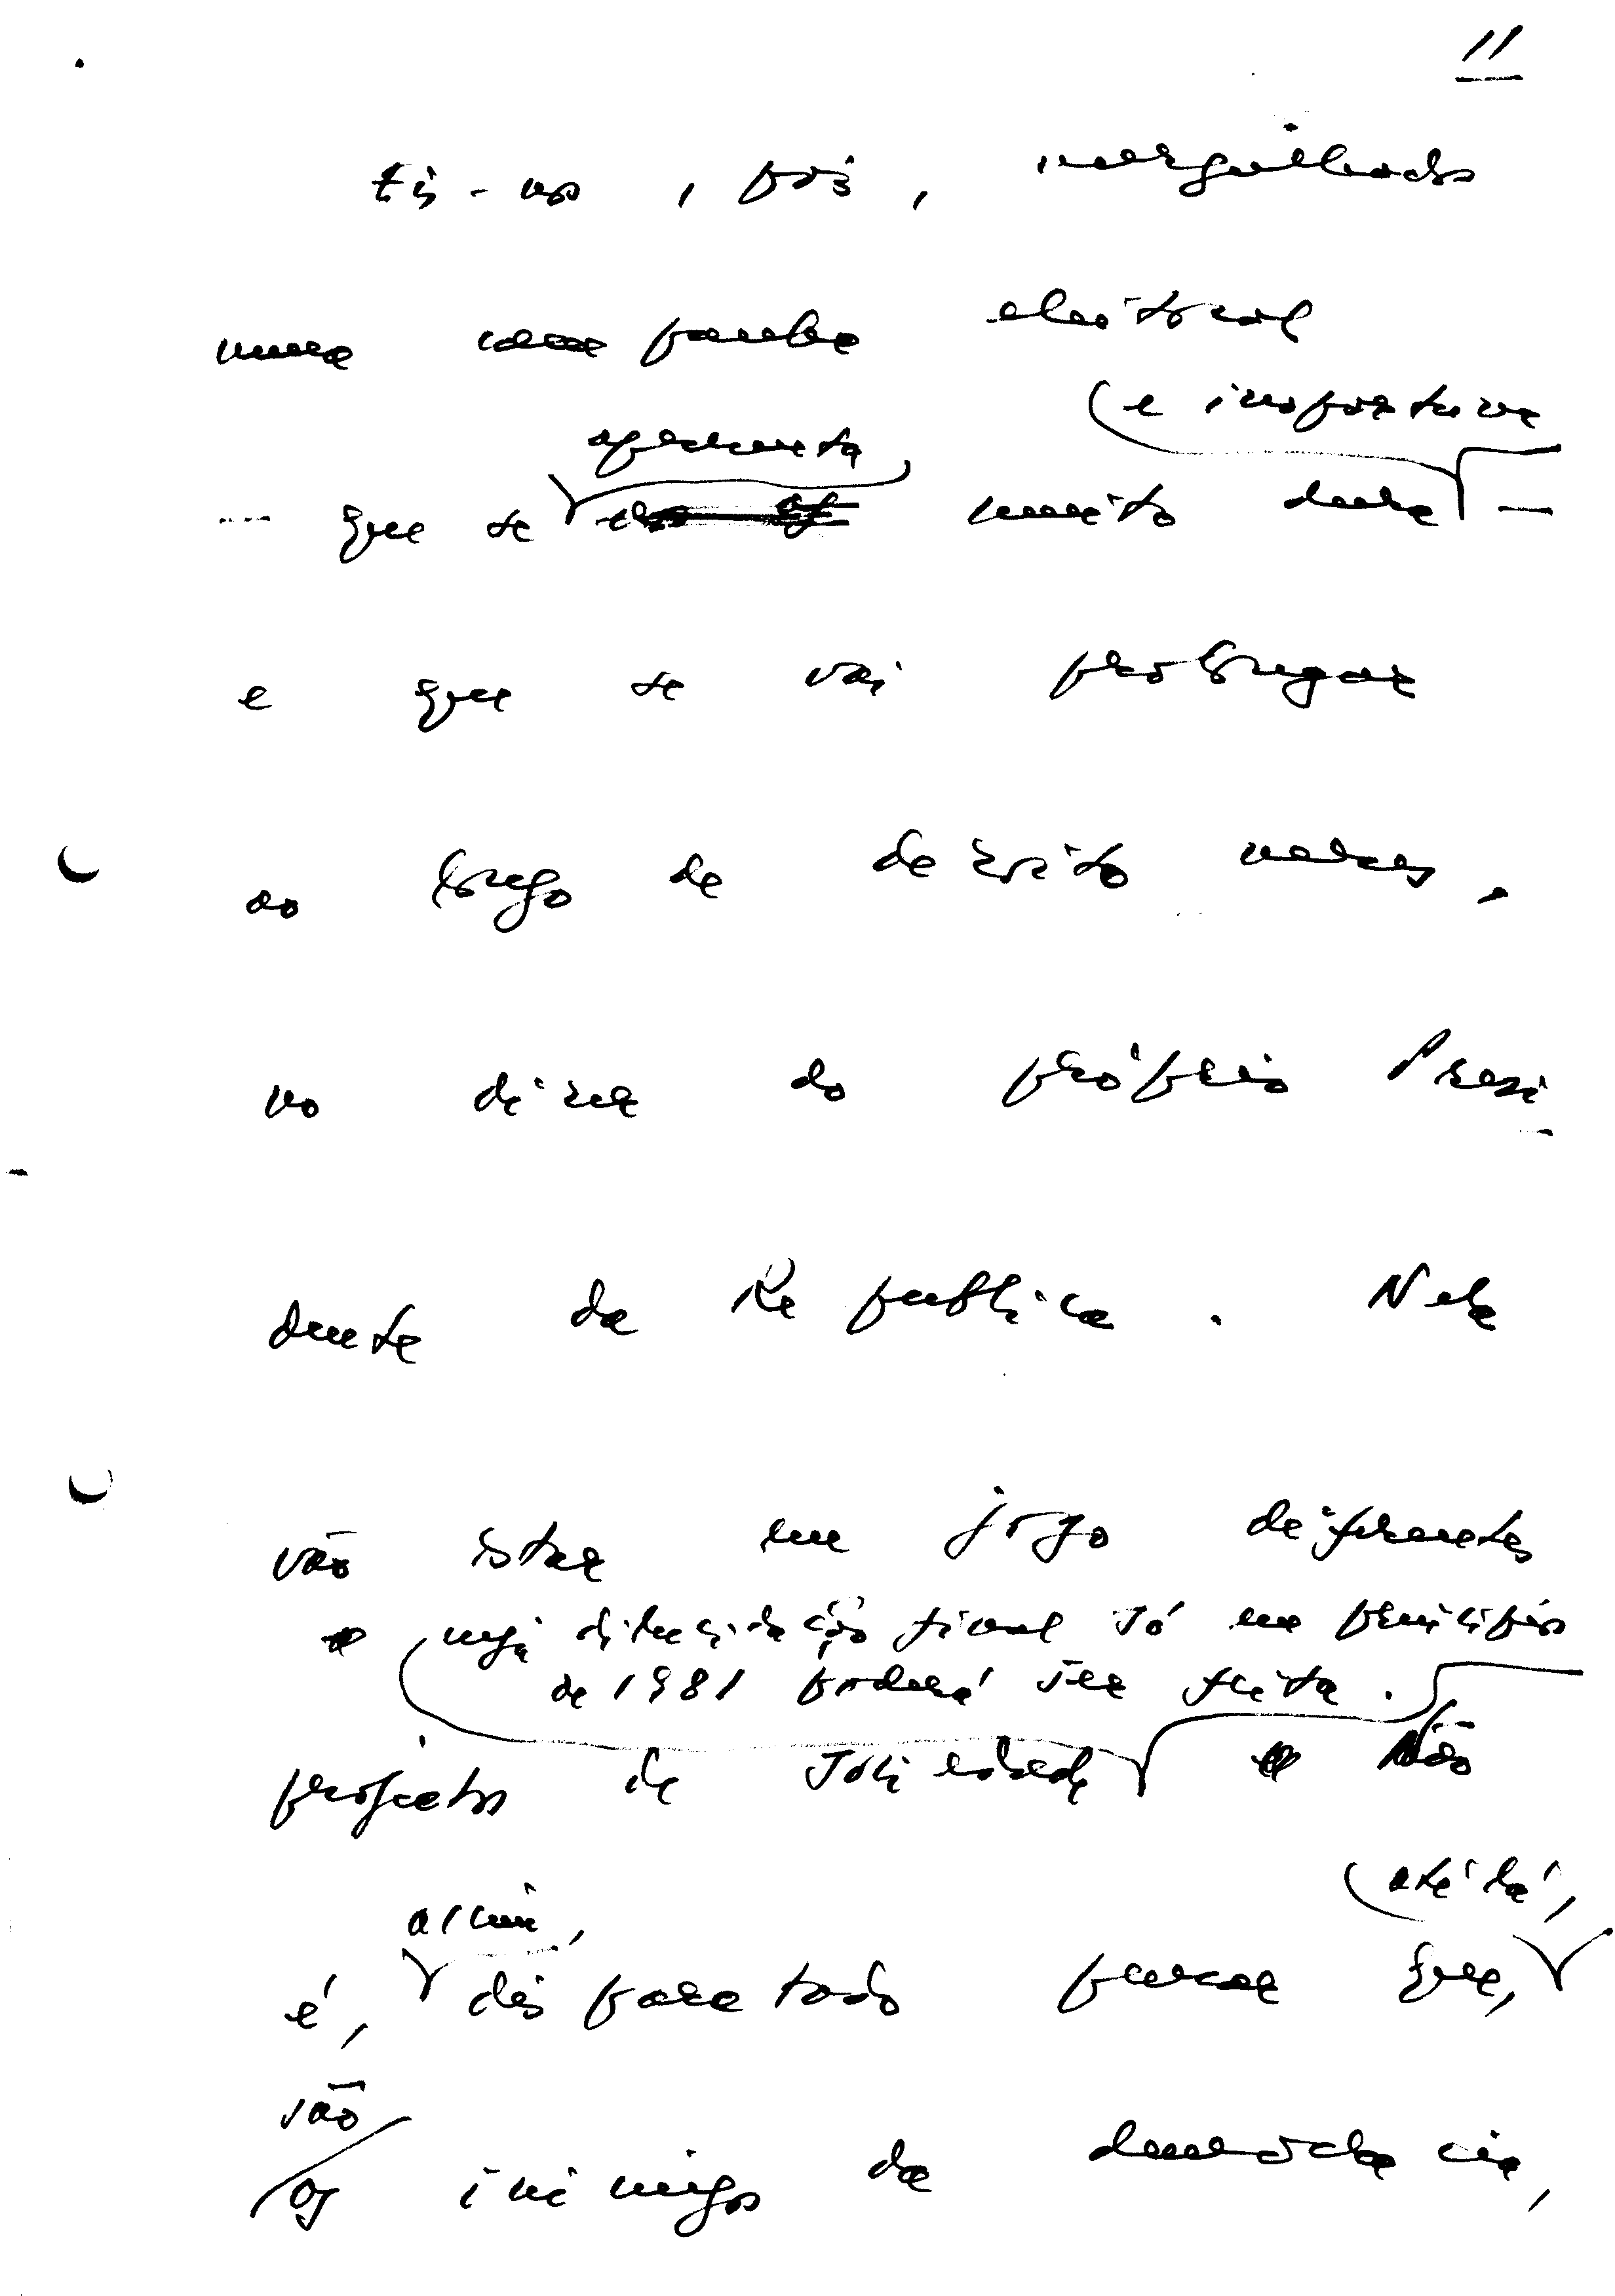 11
Eis-nos, pois, mergulhados
numa campanha eleitoral
(e inoportuna
apresenta
— que se muito dura —
e que se vai prolongar
ao longo de dezoito meses,
no dizer do próprio Presi-
dente da Republica. Nela
vão estar em jogo diferentes
cuja dilucidação final só em princípios
de 1981 poderá ser feita.
projectos de sociedade Não
até lá,
assim,
é, disparatado pensar que,
são
os inimigos da democracia,